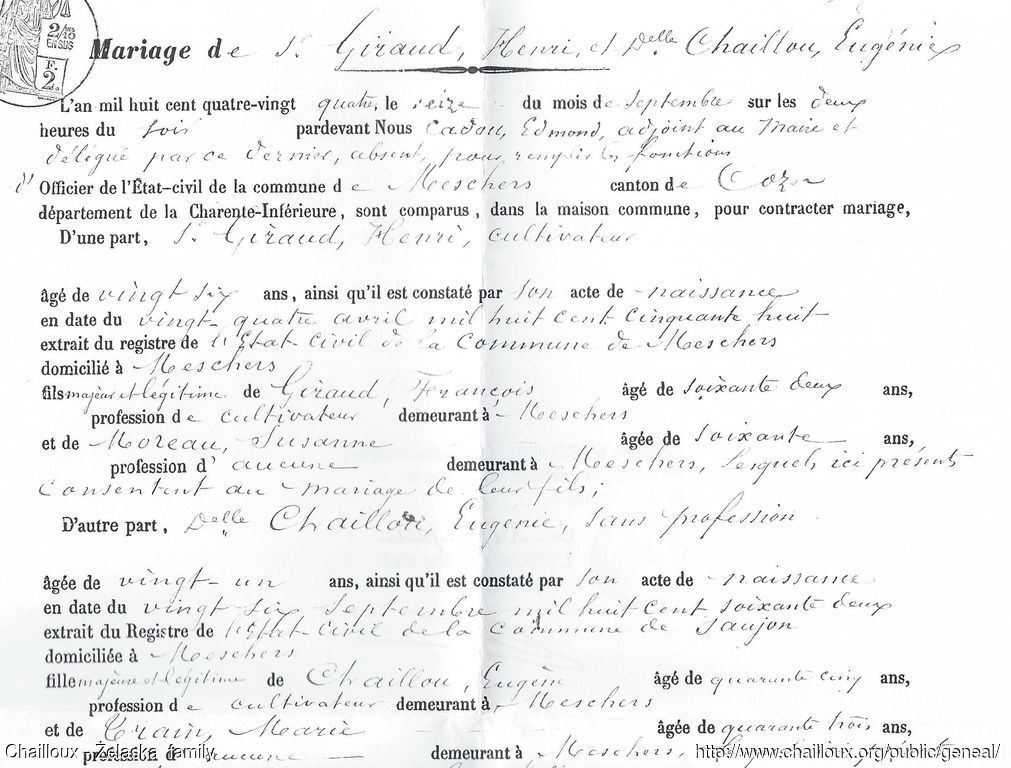 2/10
EN SUS
F.
2.
Mariage de Sr Giraud, Henri, et Delle Chaillou, Eugénie
L'an mil huit cent quatre-vingt quatre, le seize du mois de septembre sur les deux
heures du soir pardevant Nous Cadou, Edmond, adjoint au Maire et
délégué par ce dernier, absent, pour remplir les fonctions
d' Officier de l'État-civil de la commune de Meschers canton de Cozes
département de la Charente-Inférieure, sont comparus, dans la maison commune, pour contracter mariage,
D'une part, Sr Giraud, Henri, cultivateur
âgé de vingt six ans, ainsi qu'il est constaté par son acte de naissance
en date du vingt-quatre avril mil huit cent cinquante huit
extrait du registre de l'Etat-civil de la commune de Meschers
domicilié à Meschers
fils majeur et légitime de Giraud, François âgé de soixante deux ans,
profession de cultivateur demeurant à Meschers
et de Moreau, Susanne âgée de soixante ans,
profession d' aucune demeurant à Meschers, lesquels ici présents
consentent au mariage de leur fils;
D'autre part, Delle Chaillou, Eugénie, sans profession
âgée de vingt-un ans, ainsi qu'il est constaté par son acte de naissance
en date du vingt six septembre mil huit cent soixante deux
extrait du Registre de l'Etat-civil de la commune de Saujon
domiciliée à Meschers
fille majeure et légitime de Chaillou, Eugène âgé de quarante cinq ans,
profession de cultivateur demeurant à Meschers
et de Train, Marie âgée de quarante trois ans,
profession d' aucune demeurant à Meschers,
Chailloux - Żelaska family
http://www.chailloux.org/public/geneal/